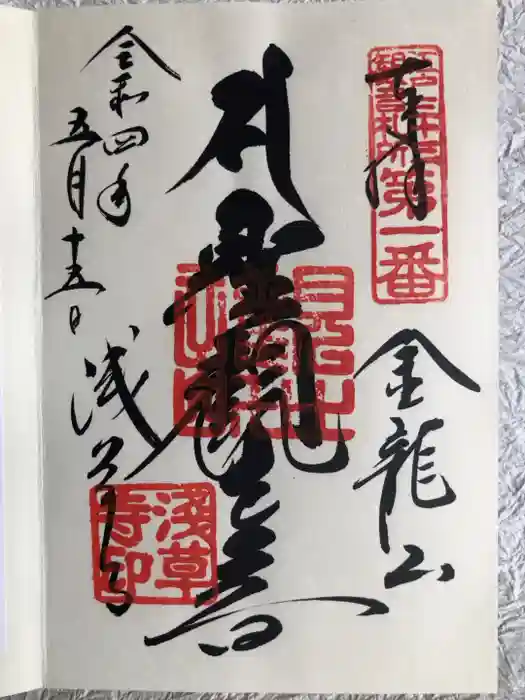 奉拝
江戸三十三所
観音札所
第一番
金龍山
聖観世音
浅草寺
浅草寺印
令和四年
五月十五日